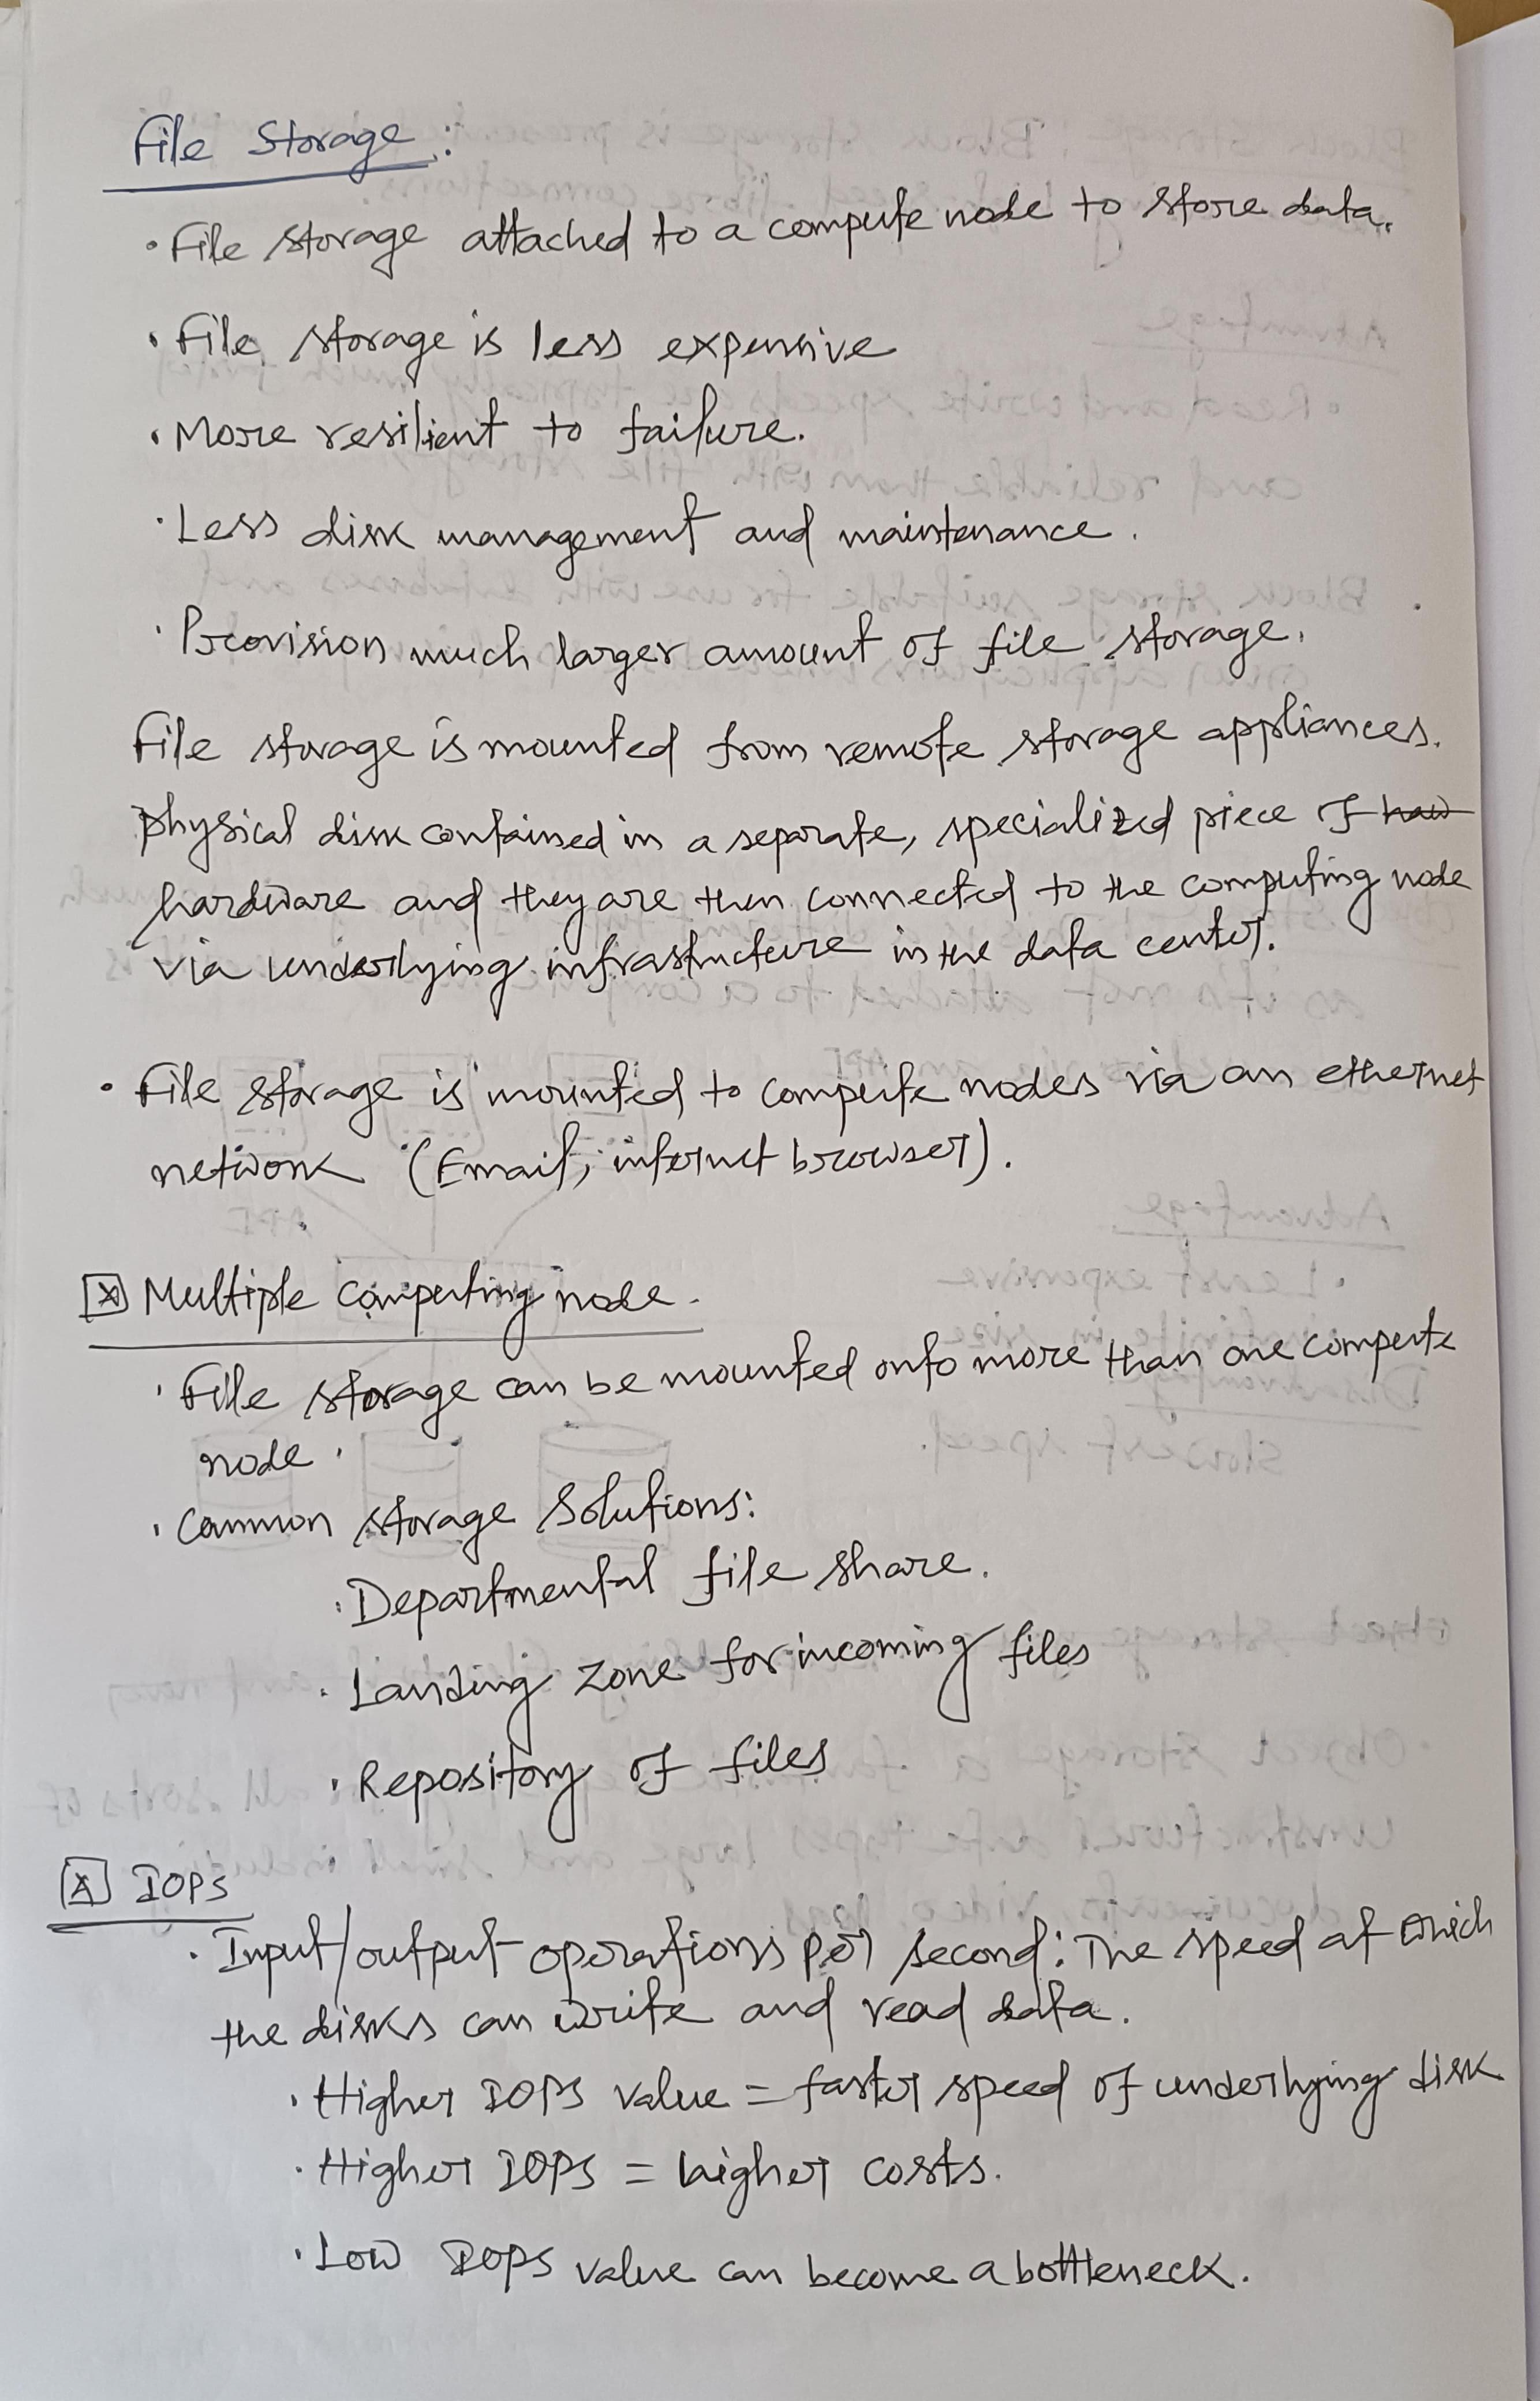 File Storage:
• File storage attached to a compute node to store data.
• File storage is less expensive
• More resilient to failure.
• Less disk management and maintenance.
• Provision much larger amount of file storage.
File storage is mounted from remote storage appliances.
Physical disk contained in a separate, specialized piece of
hardware and they are then connected to the computing node
via underlying infrastructure in the data center.
• File storage is mounted to compute nodes via an ethernet
network (Email, internet browser).
Multiple computing node.
• File storage can be mounted onto more than one compute
node.
• Common storage solutions:
• Departmental file share.
• Landing zone for incoming files
• Repository of files
IOPS
• Input/output operations per second: The speed at which
the disks can write and read data.
• Higher IOPS value = faster speed of underlying disk
• Higher IOPS = higher costs.
• Low IOPS value can become a bottleneck.